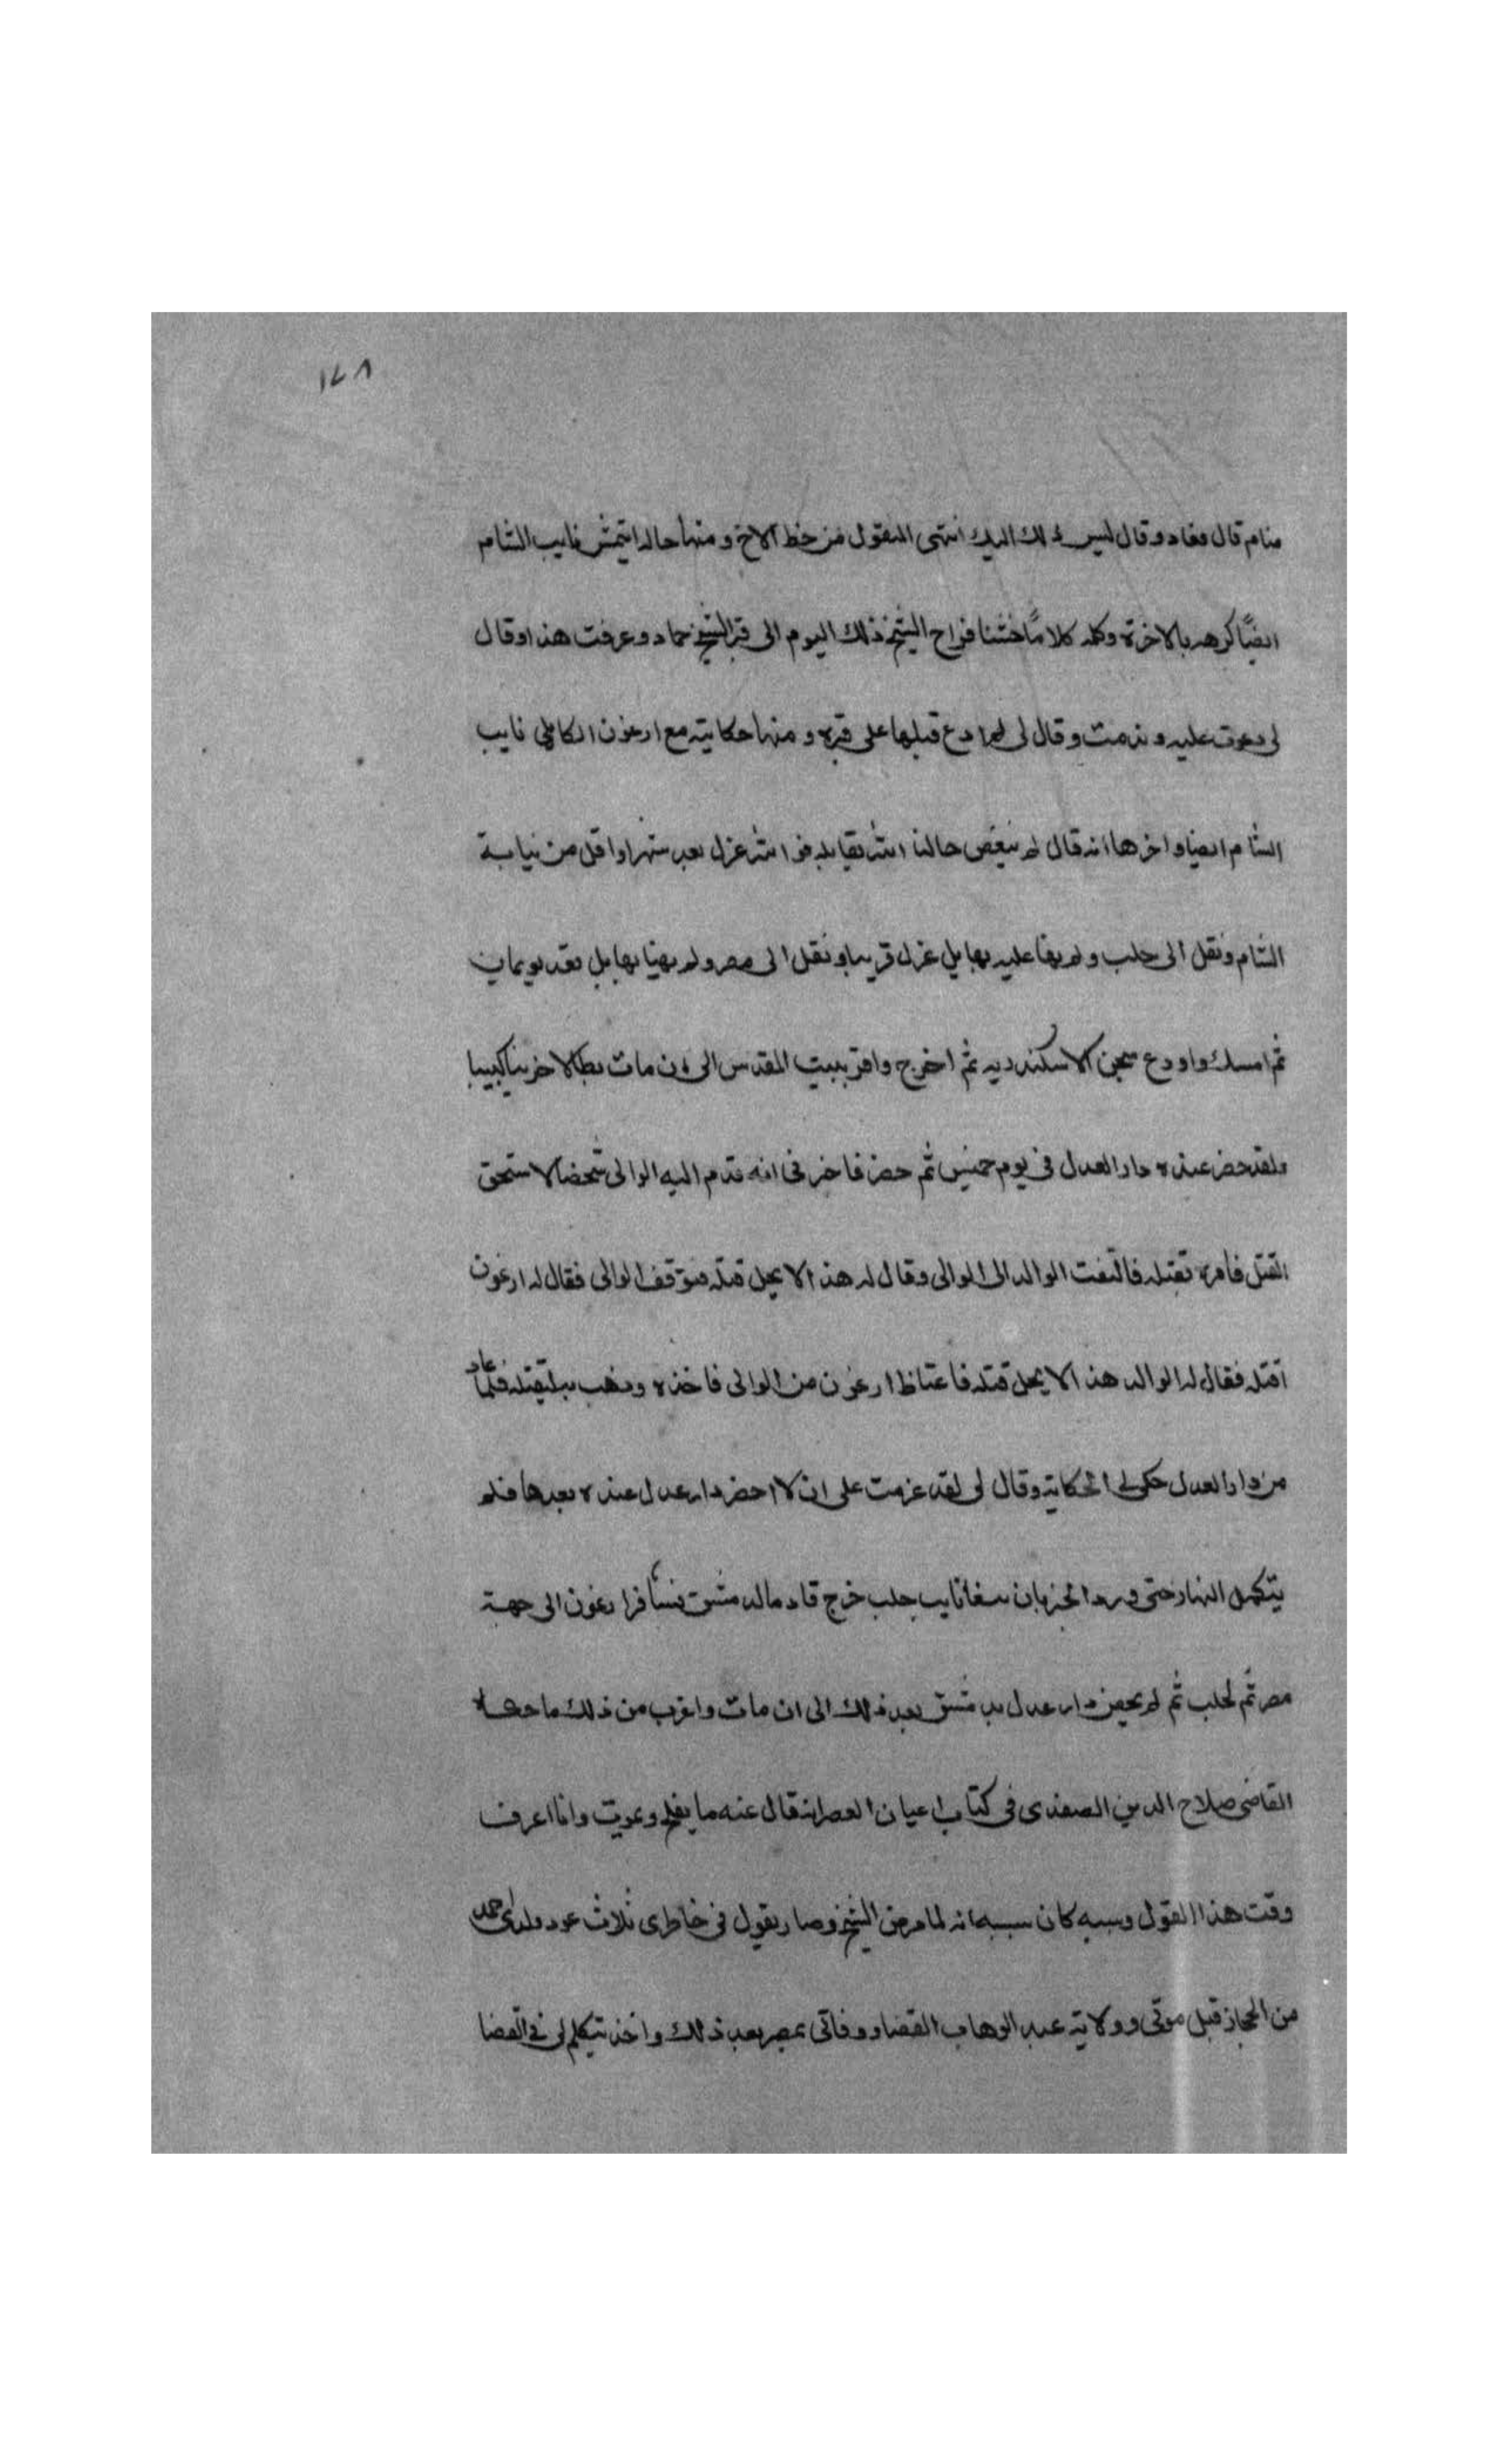 ١٤٨
منام قال فعاد وقال ليس ذلك اليك انتهى المنقول من خط الاخ ومنها حاله ايتمش نايب الشام
ايضًا كرهه بالاخرة وكلمه كلامًا خشنا فراح الشيخ ذلك اليوم الى قبر الشيخ حماد وعرفت هذا وقال
لى دعوت عليه وندمت وقال لى قبلها على قبره ومنها حكايته مع ارغون الكاملى نايب
الشام ايضا واخرها انه قال لم ينغص حالنا الله يقابله فوالله عزل بعد شهر او اقل من نيابة
الشام ونقل الى حلب ولم بها بل عزل قريبا ونقل الى مصر ولم بها بل بعد
ثم امسك واودع سجن الاسكندريه ثم اخرج واقر ببيت المقدس الى ان مات بطالا حزينا كييبا
ولقد حضر عنده دار العدل فى يوم خميس ثم حضر فاخبرنى انه قدم اليه الوالى شخصا لا يستحق
القتل فامره بقتله فالتفت الوالد الى الوالى وقال له هذا لا يحل قتله فتوقف الوالى فقال له ارغون
اقتله فقال له الوالد هذا لا يحل قتله فاغتاظ ارغون من الوالى فاخذه وذهب به ليقتله فلما عاد
من دار العدل حكى لى الحكاية وقال لى لقد عزمت على ان لا احضر دار عدل عنده بعدها فلم
يتكمل النهار حتى ورد الخبر بان نايب حلب خرج قاصدا دمشق ارغون الى جهة
مصر ثم لحلب ثم لم يحضر دار عدل بدمشق بعد ذلك الى ان مات واغرب من ذلك ما حكاه
القاضى صلاح الدين الصفدى فى كتاب اعيان العصر انه قال عنه ما يفلح ويموت وانا اعرف
وقت هذا القول وسببه كان سببه انه لما مرض الشيخ وصار يقول فى خاطرى ثلاث عود ولدى احمد
من الحجاز قبل موتى وولاية عبد الوهاب القضا ووفاتى بمصر بعد ذلك واخذ يتكلم لى فى القضا